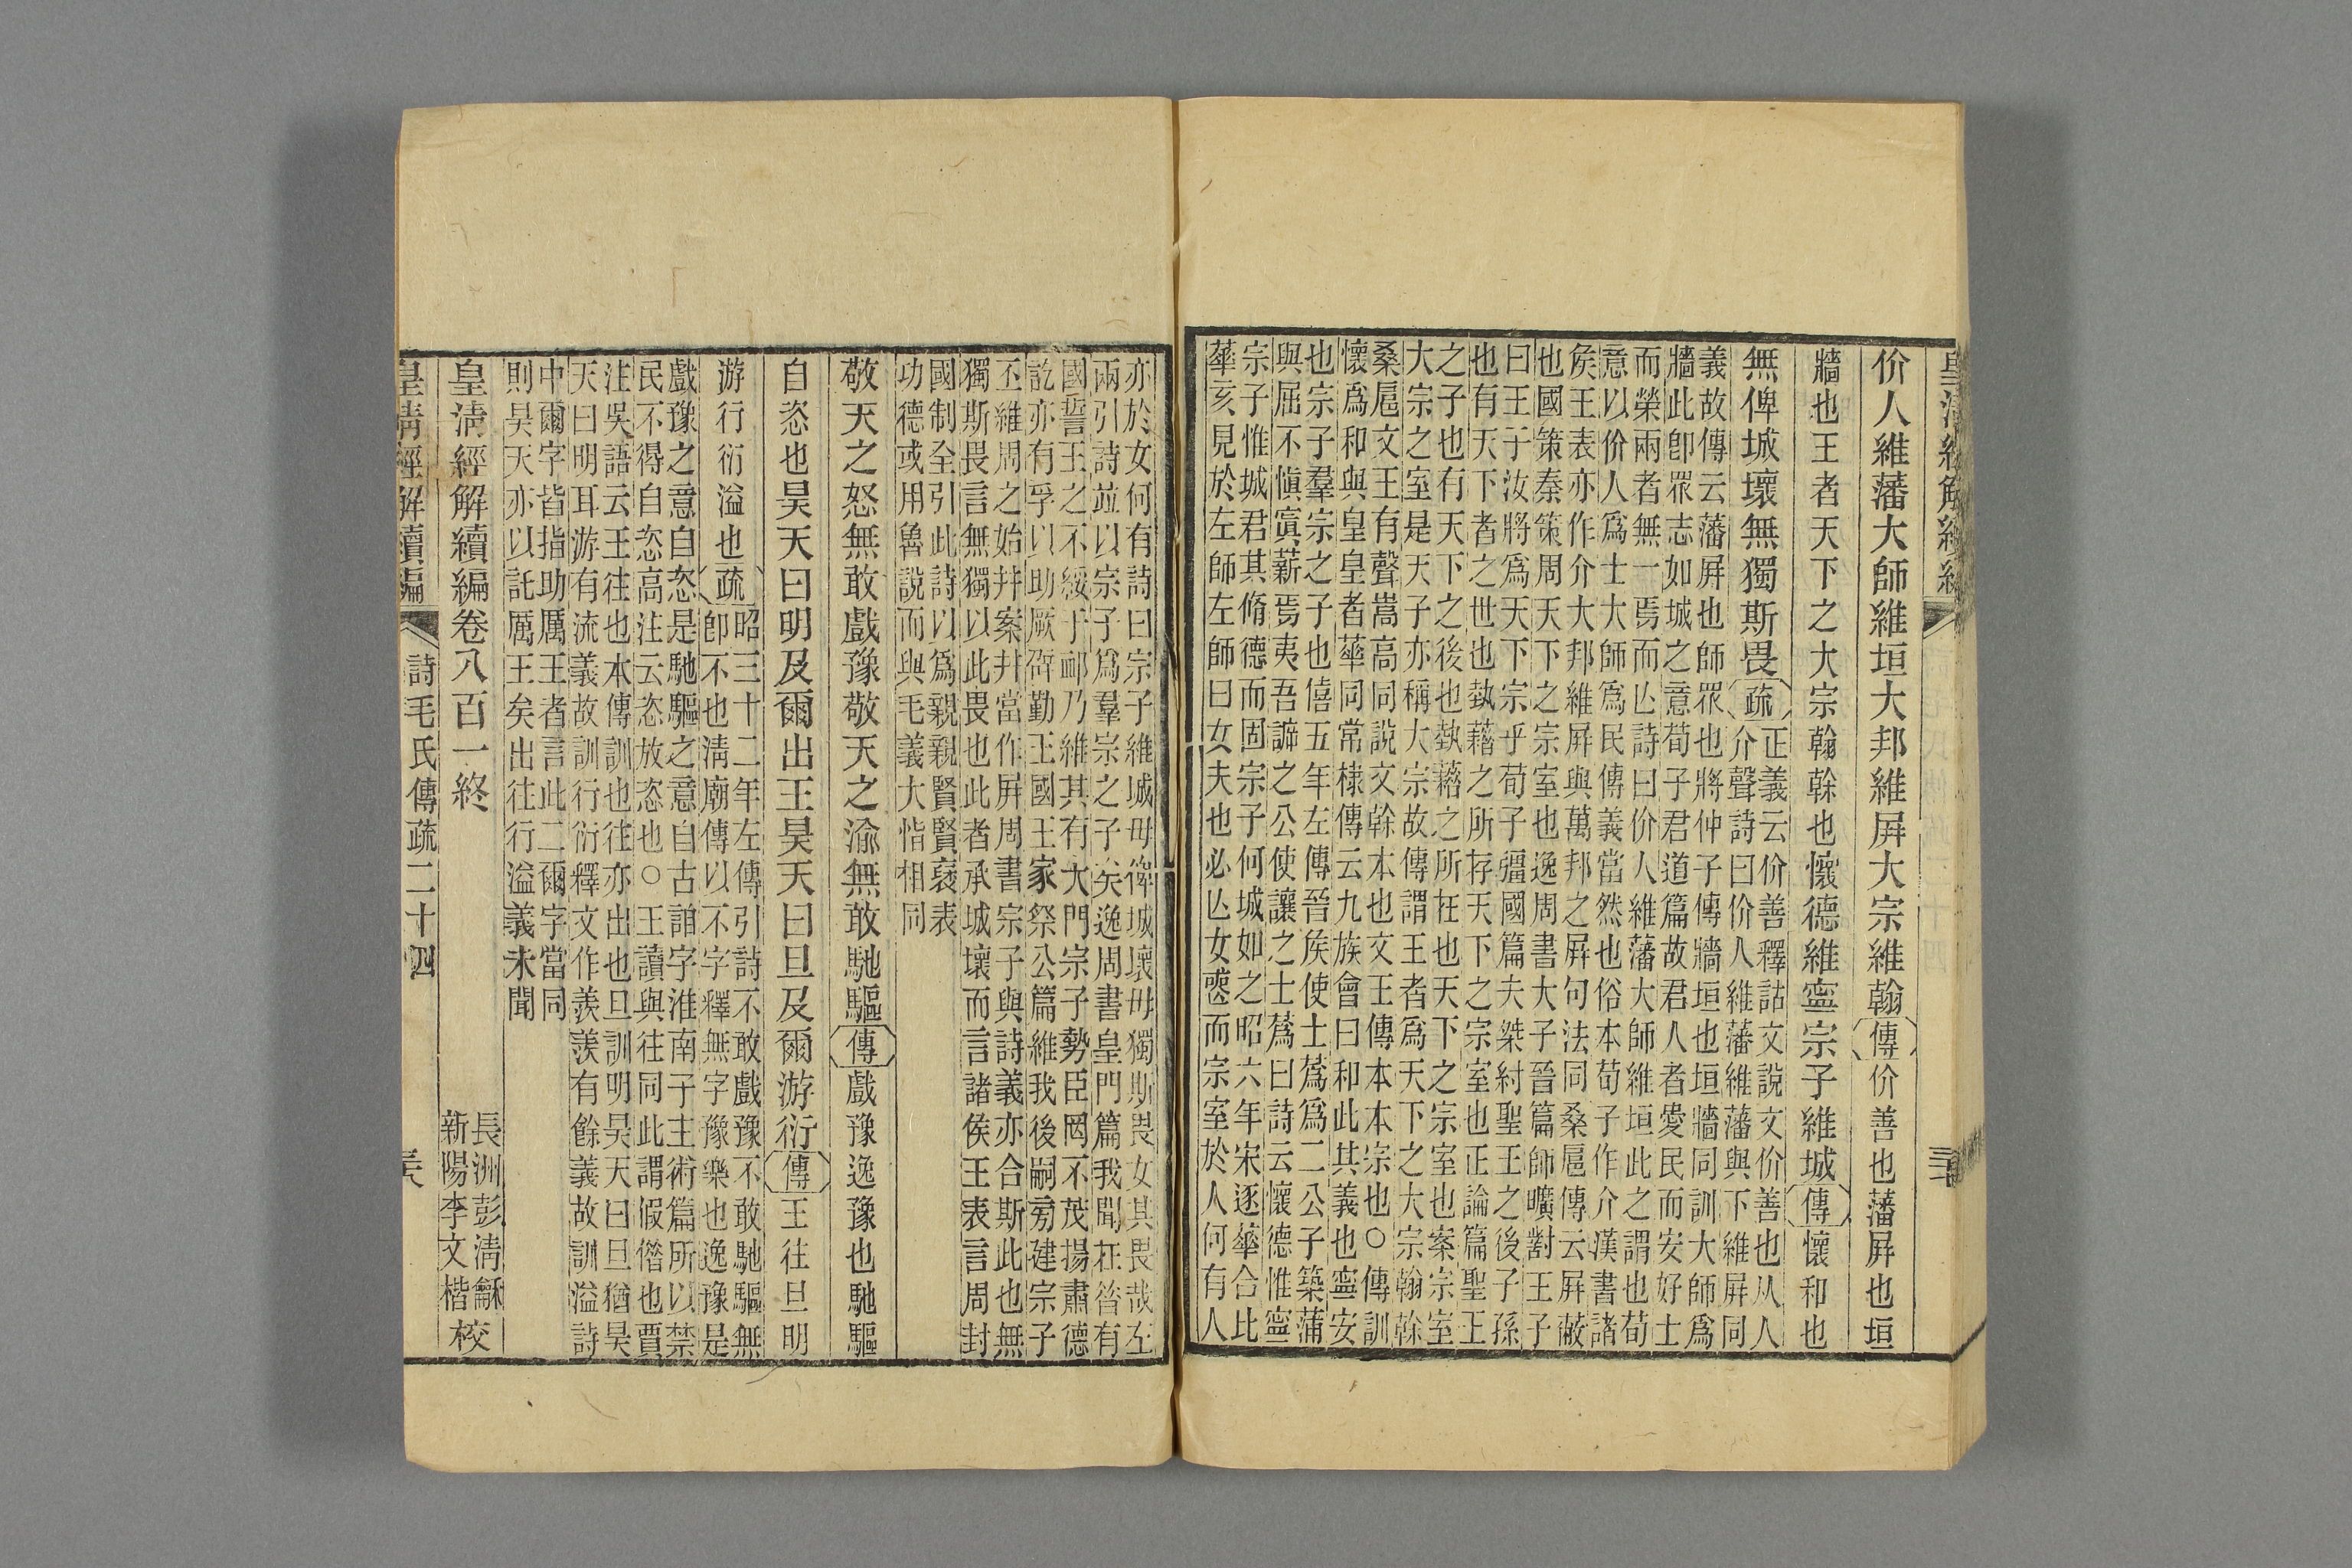 价人維藩大師維垣大邦維屏大宗維翰傳价善也藩屏也垣
牆也王者天下之大宗翰榦也懷德維寧宗子維城傳懷和也
無俾城壞無獨斯畏疏
正義云价善釋詁文說文价善也从人
介聲詩曰价人維藩維藩與下維屏同
義故傳云藩屏也師眾也將仲子傳牆垣也垣牆同訓大師爲
牆此卽眾志如城之意荀子君道篇故君人者愛民而安好士
而榮兩者無一焉而亾詩曰价人維藩大師維垣此之謂也荀
意以价人爲士大師爲民傳義當然也俗本荀子作介漢書諸
矦王表亦作介大邦維屏與萬邦之屏句法同桑扈傳云屏蔽
也國策秦策周天下之宗室也逸周書大子晉篇師曠對王子
曰王子汝將爲天下宗乎荀子彊國篇夫桀紂聖王之後子孫
也有天下者之世也埶藉之所存天下之宗室也正論篇聖王
之子也有天下之後也埶藉之所在也天下之宗室也案宗室
大宗之室是天子亦稱大宗故傳謂王者爲天下之大宗翰榦
桑扈文王有聲嵩高同說文榦本也文王傳本本宗也○傳訓
懷爲和與皇皇者華同常棣傳云九族會曰和此其義也寧安
也宗子羣宗之子也僖五年左傳晉矦使士蔿爲二公子築蒲
與屈不愼寘薪焉夷吾謶之公使讓之士蔿曰詩云懷德惟寧
宗子惟城君其脩德而固宗子何城如之昭六年宋逐華合比
華亥見於左師左師曰女夫也必亾女喪而宗室於人何有人
亦於女何有詩曰宗子維城毋俾城壞毋獨斯畏女其畏哉左
兩引詩竝以宗子爲羣宗之子矣逸周書皇門篇我聞在昔有
國誓王之不綏于卹乃維其有大門宗子勢臣罔不茂揚肅德
訖亦有孚以助厥辟勤王國王家祭公篇維我後嗣㫄建宗子
丕維周之始幷案幷當作屏周書宗子與詩義亦合斯此也無
獨斯畏言無獨以此畏也此者承城壞而言諸侯王表言周封
國制全引此詩以爲親親賢賢褒表
功德或用魯說而與毛義大恉相同
敬天之怒無敢戲豫敬天之渝無敢馳驅傳戲豫逸豫也馳驅
自恣也昊天曰明及爾出王昊天曰旦及爾游衍傳王往旦明
游行衍溢也疏
昭三十二年左傳引詩不敢戲豫不敢馳驅無
卽不也淸廟傳以不字釋無字豫樂也逸豫是
戲豫之意自恣是馳驅之意自古誼字淮南子主術篇所以禁
民不得自恣高注云恣放恣也○王讀與往同此謂假借也賈
注吳語云王往也本傳訓也往亦出也旦訓明昊天曰旦猶昊
天曰明耳游有流義故訓行衍釋文作羨羨有餘義故訓溢詩
中爾字皆指助厲王者言此二爾字當同
則昊天亦以託厲王矣出往行溢義未聞
皇淸經解續編卷八百一終
長洲彭淸龢
新陽李文楷校
皇淸經解續編 詩毛氏傳疏二十四